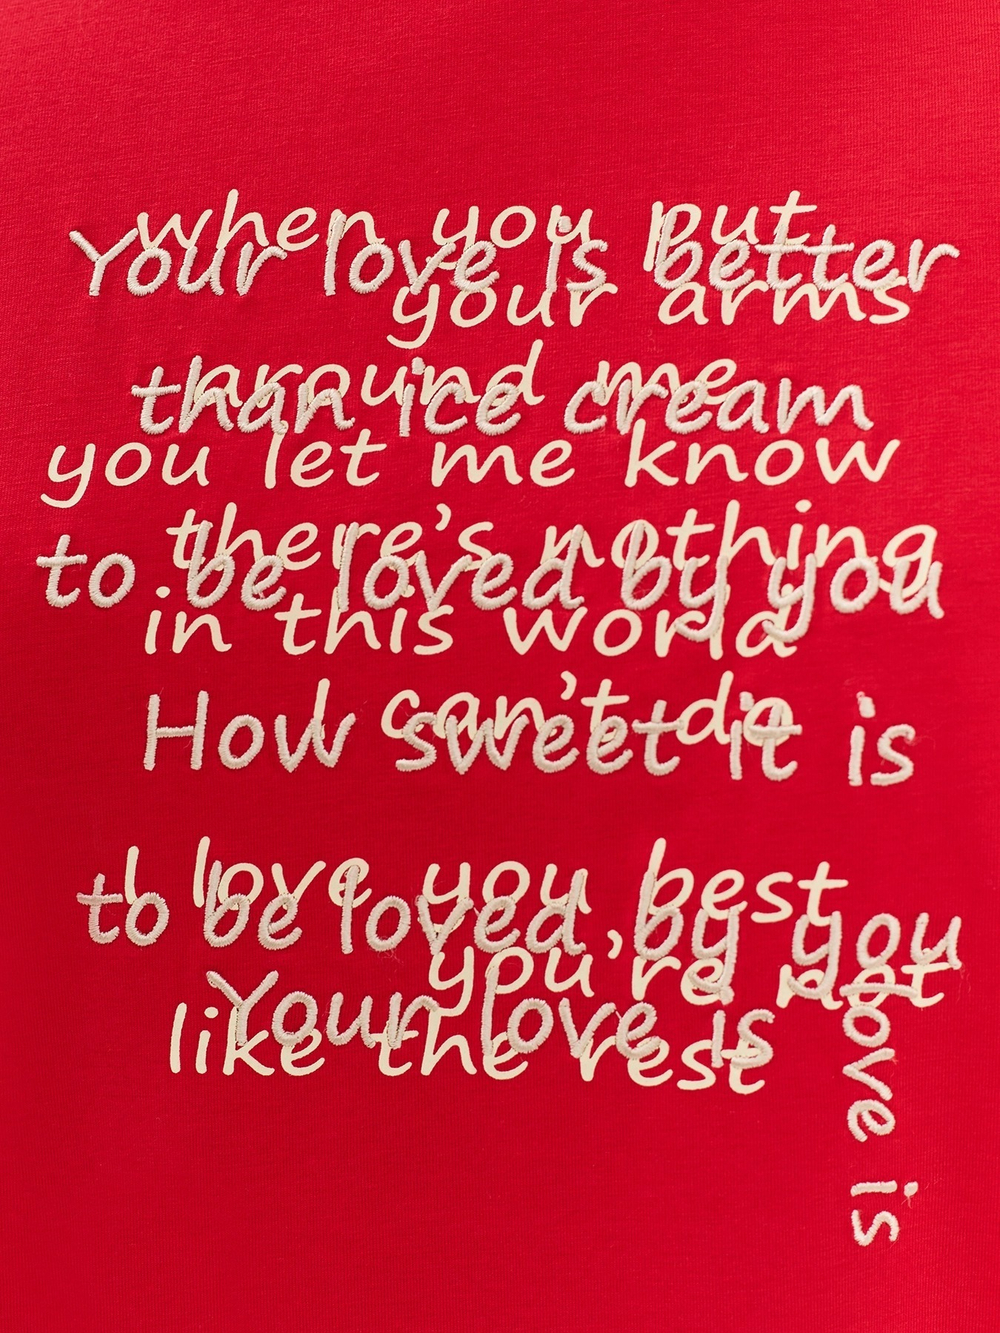 when you put
Your love is better
your arms
around me
than ice cream
you let me know
there's nothing
to be loved by you
in this world
can't do
How sweet it is
I love you best
to be loved by you
you're not
Your love is
like the rest
love is